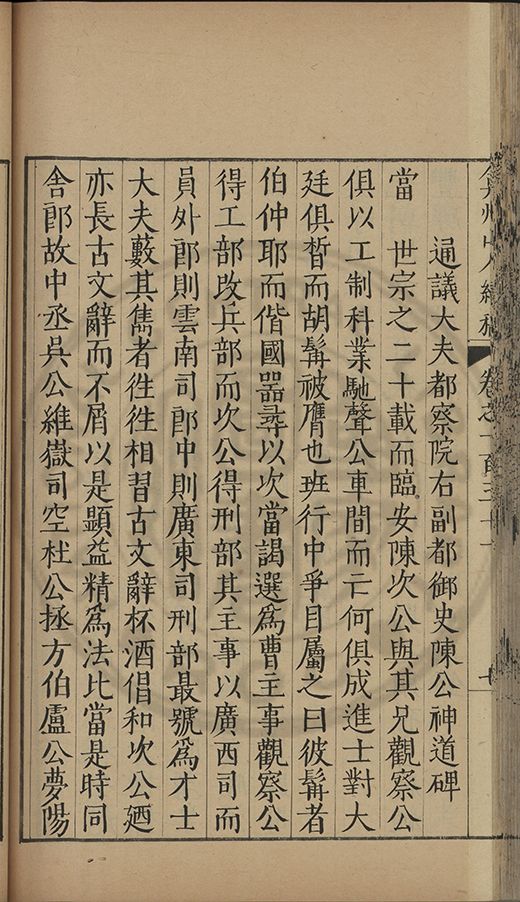 弇州山人續稿 卷之一百三十
通議大夫都察院右副都御史陳公神道碑
當 世宗之二十載而臨安陳次公與其兄觀察公
俱以工制科業馳聲公車間而亡何俱成進士對大
廷俱晳而胡髯被膺也班行中爭目屬之曰彼髯者
伯仲耶而偕國器尋以次當謁選為曹主事觀察公
得工部改兵部而次公得刑部其主事以廣西司而
員外郎則雲南司郎中則廣東司刑部最號為才士
大夫藪其雋者徃徃相習古文辭杯酒倡和次公廼
亦長古文辭而不屑以是顯益精為法比當是時同
舍郎故中丞吳公維嶽司空杜公拯方伯盧公夢陽